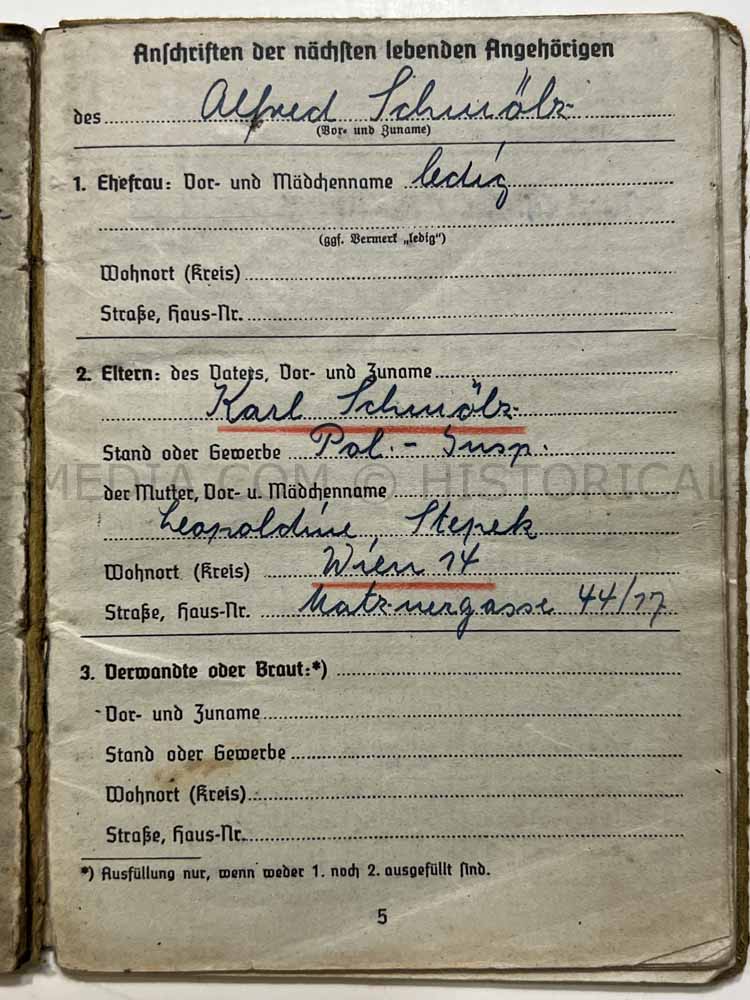 Anschriften der nächsten lebenden Angehörigen
des Alfred Schmölz
(Vor- und Zuname)
1. Ehefrau: Vor- und Mädchenname ledig
(ggf. Vermerk „ledig")
Wohnort (Kreis)
Straße, Haus-Nr.
2. Eltern: des Vaters, Vor- und Zuname
Karl Schmölz
Stand oder Gewerbe Pol.- Insp.
-MEDIA.COM © HISTORICAL
der Mutter, Vor- u. Mädchenname
Leopoldine Stepek
Wohnort (Kreis) Wien 14
Straße, Haus-Nr. Matznergasse 44/17
3. Verwandte oder Braut:*)
Vor- und Zuname
Stand oder Gewerbe
Wohnort (Kreis)
Straße, Haus-Nr.
*) Ausfüllung nur, wenn weder 1. noch 2. ausgefüllt sind.
5